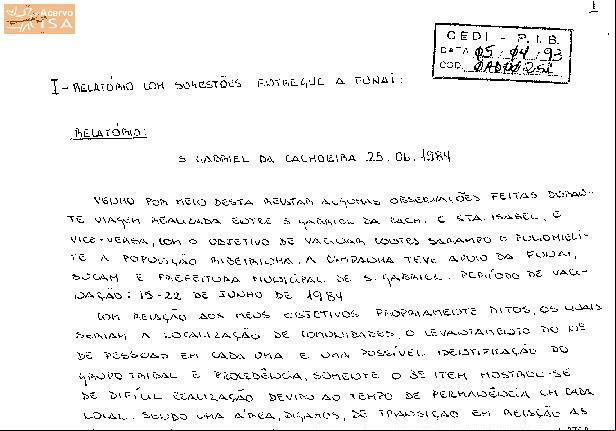 Acervo
ISA
1
CEDI - P. I. B.
DATA 05/04/93
COD.
I - RELATÓRIO COM SUGESTÕES ENTREGUE A FUNAI:
RELATÓRIO:
S GABRIEL DA CACHOEIRA 25.06.1984
VENHO POR MEIO DESTA RELATAR ALGUMAS OBSERVAÇÕES FEITAS DURAN-
TE VIAGEM REALIZADA ENTRE S GABRIEL DA CACH. E STA. ISABEL, E
VICE-VERSA, COM O OBJETIVO DE VACINAR CONTRA SARAMPO E POLIOMIELI-
TE A POPULAÇÃO RIBEIRINHA. A CAMPANHA TEVE APOIO DA FUNAI,
SUCAM E PREFEITURA MUNICIPAL DE S. GABRIEL. PERÍODO DE VACI-
NAÇÃO: 15-22 DE JUNHO DE 1984
COM RELAÇÃO AOS MEUS OBJETIVOS PROPRIAMENTE DITOS, OS QUAIS
SERIAM A LOCALIZAÇÃO DE COMUNIDADES, O LEVANTAMENTO DO Nº
DE PESSOAS EM CADA UMA E UMA POSSÍVEL IDENTIFICAÇÃO DO
GRUPO TRIBAL E PROCEDÊNCIA, SOMENTE O 3º ITEM MOSTROU-SE
DE DIFÍCIL REALIZAÇÃO DEVIDO AO TEMPO DE PERMANÊNCIA EM CADA
LOCAL. SENDO UMA ÁREA, DIGAMOS, DE TRANSIÇÃO EM RELAÇÃO AS